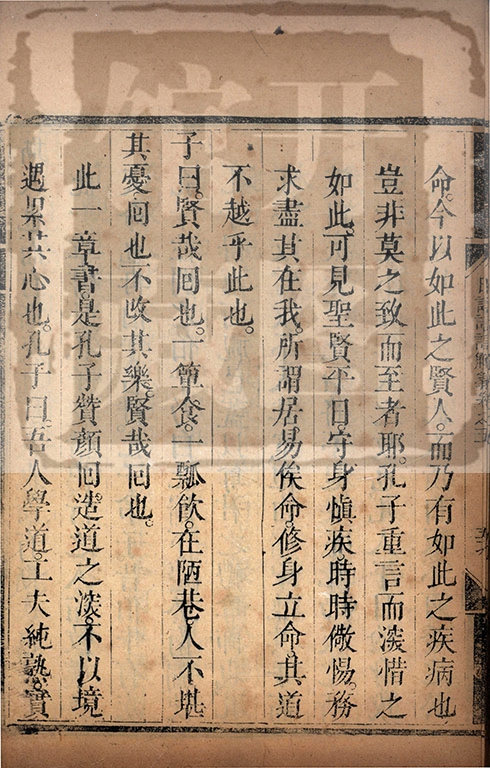 命。今以如此之賢人。而乃有如此之疾病也
豈非莫之致而至者耶。孔子重言而深惜之
如此。可見聖賢平日。守身慎疾。時時儆惕。務
求盡其在我。所謂居易俟命。修身立命。其道
不越乎此也。
子曰。賢哉囘也。一簞食。一瓢飲。在陋巷。人不堪
其憂。囘也不改其樂。賢哉囘也。
此一章書。是孔子贊顏囘造道之深。不以境
遇累其心也。孔子曰。吾人學道。工夫純熟。實